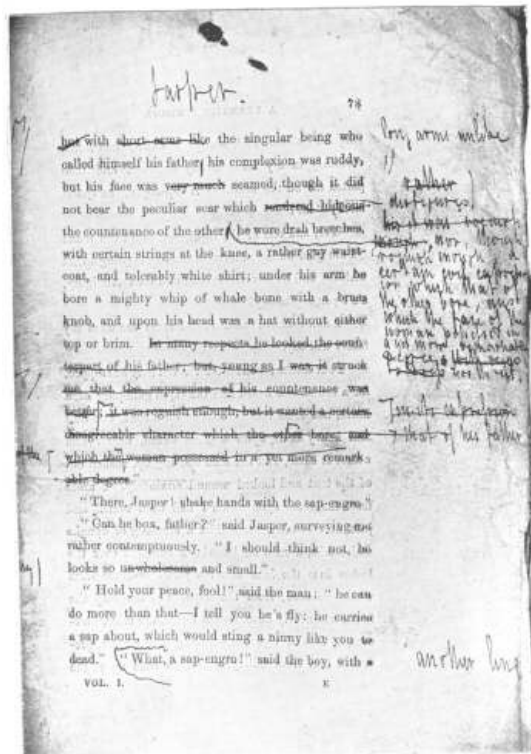 Jasper.
73
but with short arms like the singular being who
called himself his father, his complexion was ruddy,
but his face was very much seamed, though it did
not bear the peculiar scar which rendered hideous
the countenance of the other; he wore drab breeches,
with certain strings at the knee, a rather gay waist-
coat, and tolerably white shirt; under his arm he
bore a mighty whip of whale bone with a brass
knob, and upon his head was a hat without either
top or brim. In many respects he looked the coun-
terpart of his father; but, young as I was, it struck
me that the expression of his countenance was
better; it was roguish enough, but it wanted a certain
disagreeable character which the other bore, and
which the woman possessed in a yet more remark-
able degree."
"There, Jasper! shake hands with the sap-engro."
"Can he box, father?" said Jasper, surveying me
rather contemptuously. "I should think not, he
looks so unwholesome and small."
"Hold your peace, fool!" said the man; "he can
do more than that—I tell you he's fly: he carries
a sap about, which would sting a ninny like you to
dead." "What, a sap-engro!" said the boy, with a
VOL. I. E
long arms unlike
rather
disfigured
roguish enough a
certain evil expression
which that of
the other bore, and
which the face of the
woman possessed in
a yet more remarkable
degree
expression
that of his father
another line